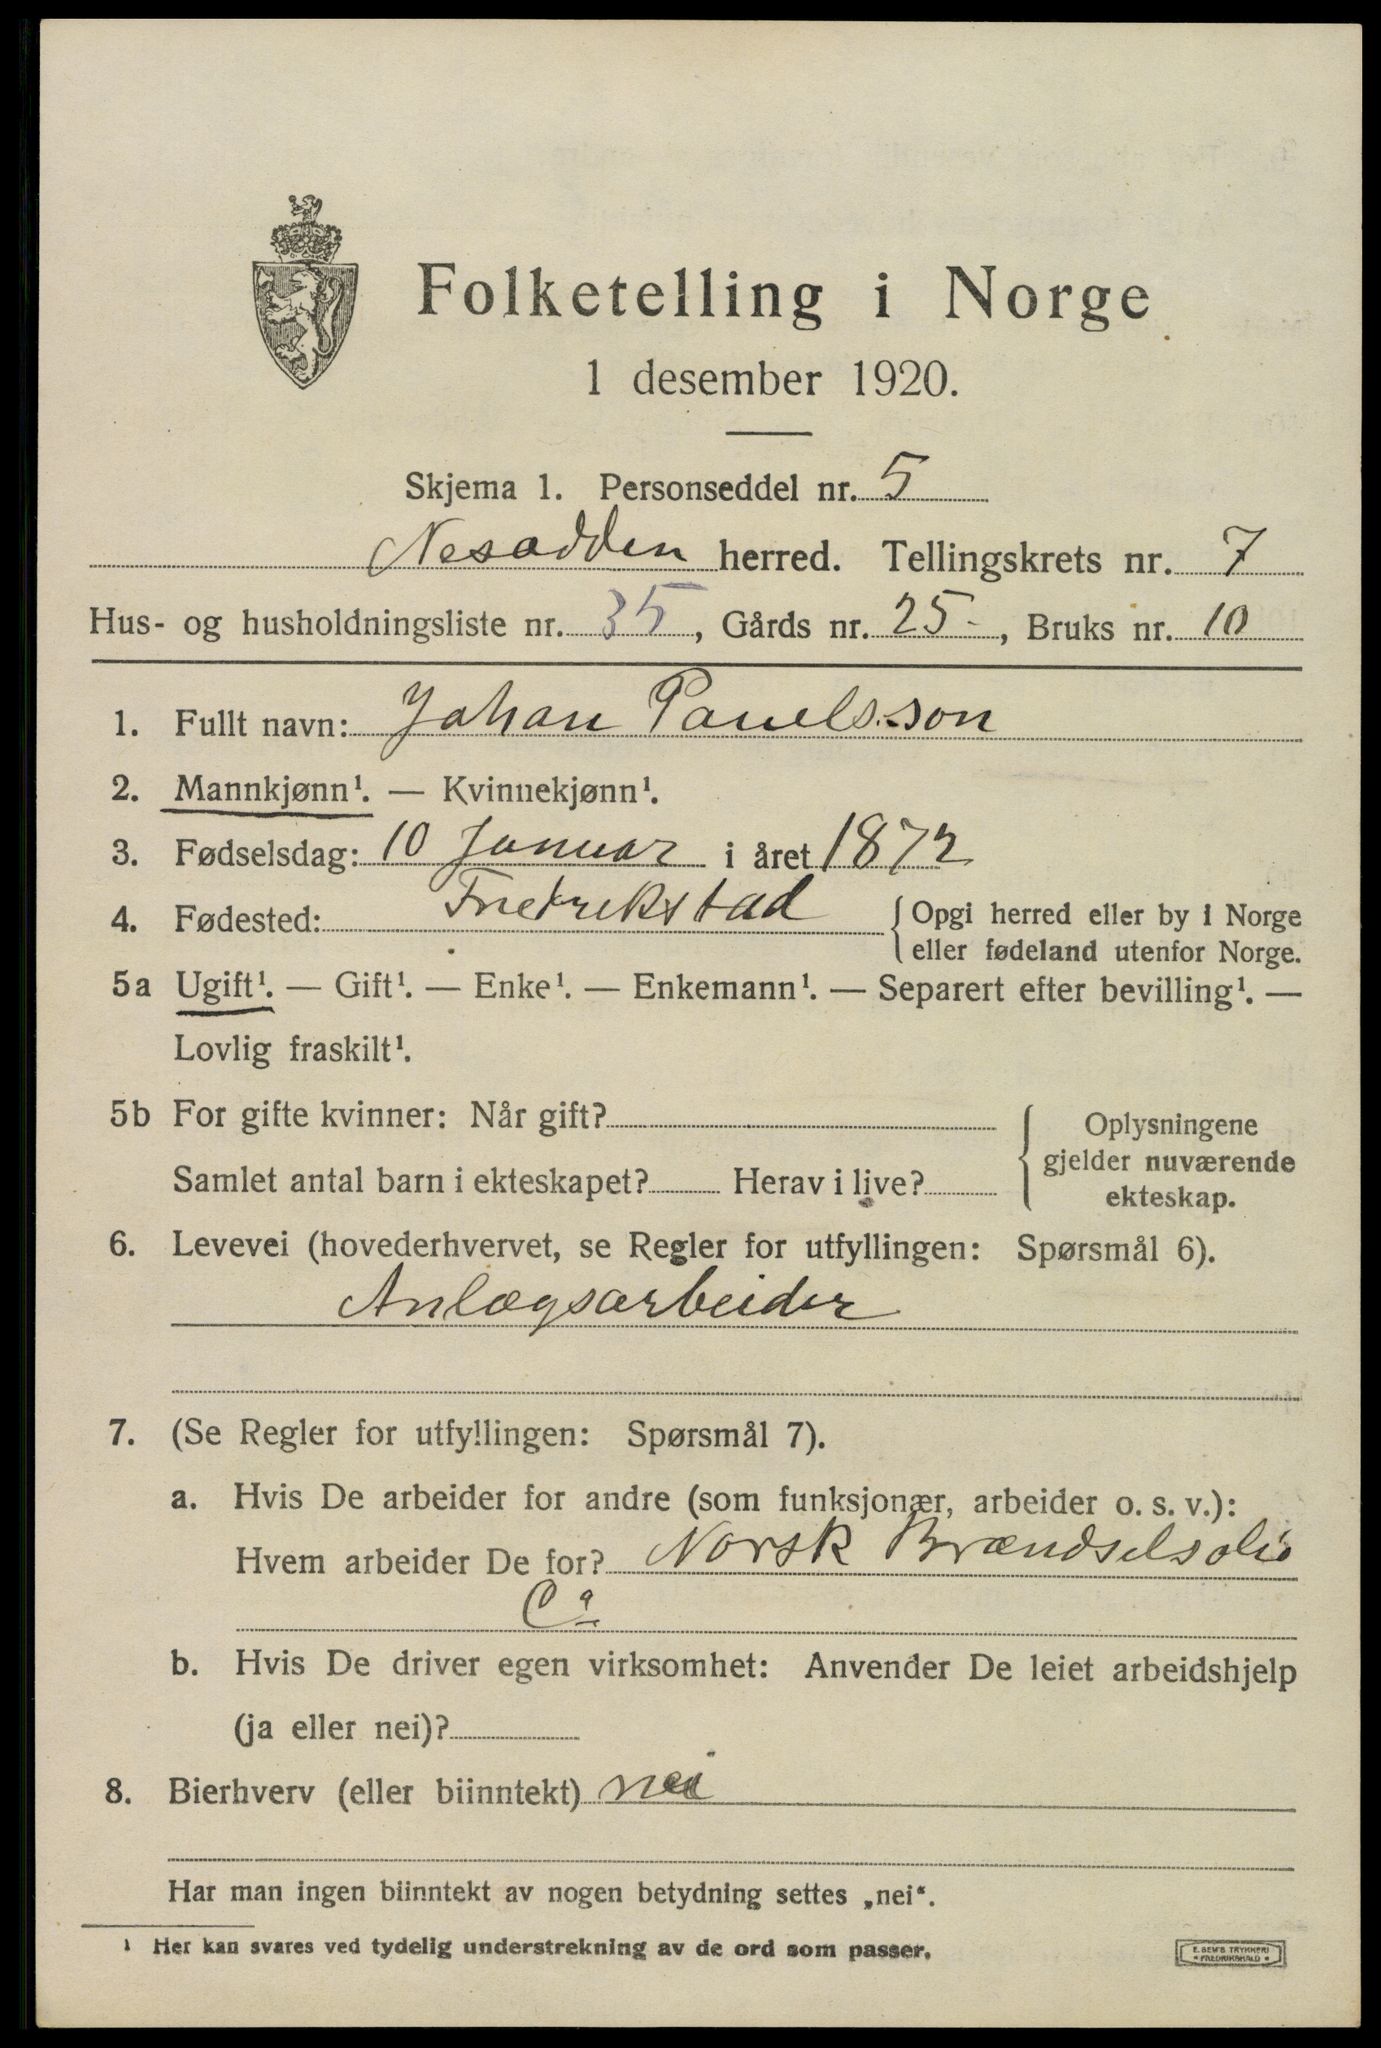 Folketelling i Norge
1 desember 1920.
Skjema 1. Personseddel nr. 5
Nesodden herred. Tellingskrets nr. 7
Hus- og husholdningsliste nr. 35, Gårds nr. 25-, Bruks nr. 10
1. Fullt navn: Johan Pauelsson
2. Mannkjønn¹. — Kvinnekjønn¹.
3. Fødselsdag: 10 Januar i året 1872
4. Fødested: Fredrikstad { Opgi herred eller by i Norge
eller fødeland utenfor Norge.
5a Ugift¹. — Gift¹. — Enke¹. — Enkemann¹. — Separert efter bevilling¹. —
Lovlig fraskilt¹.
5b For gifte kvinner: Når gift? { Oplysningene
gjelder nuværende
Samlet antal barn i ekteskapet? Herav i live?
ekteskap.
6. Levevei (hovederhvervet, se Regler for utfyllingen: Spørsmål 6).
Anlægsarbeider
7. (Se Regler for utfyllingen: Spørsmål 7).
a. Hvis De arbeider for andre (som funksjonær, arbeider o. s. v.):
Hvem arbeider De for? Norsk Brændselsolie
Co
b. Hvis De driver egen virksomhet: Anvender De leiet arbeidshjelp
(ja eller nei)?
8. Bierhverv (eller biinntekt) nei
Har man ingen biinntekt av nogen betydning settes „nei“.
¹ Her kan svares ved tydelig understrekning av de ord som passer.
E. SEM'S TRYKKERI
FREDRIKSHALD